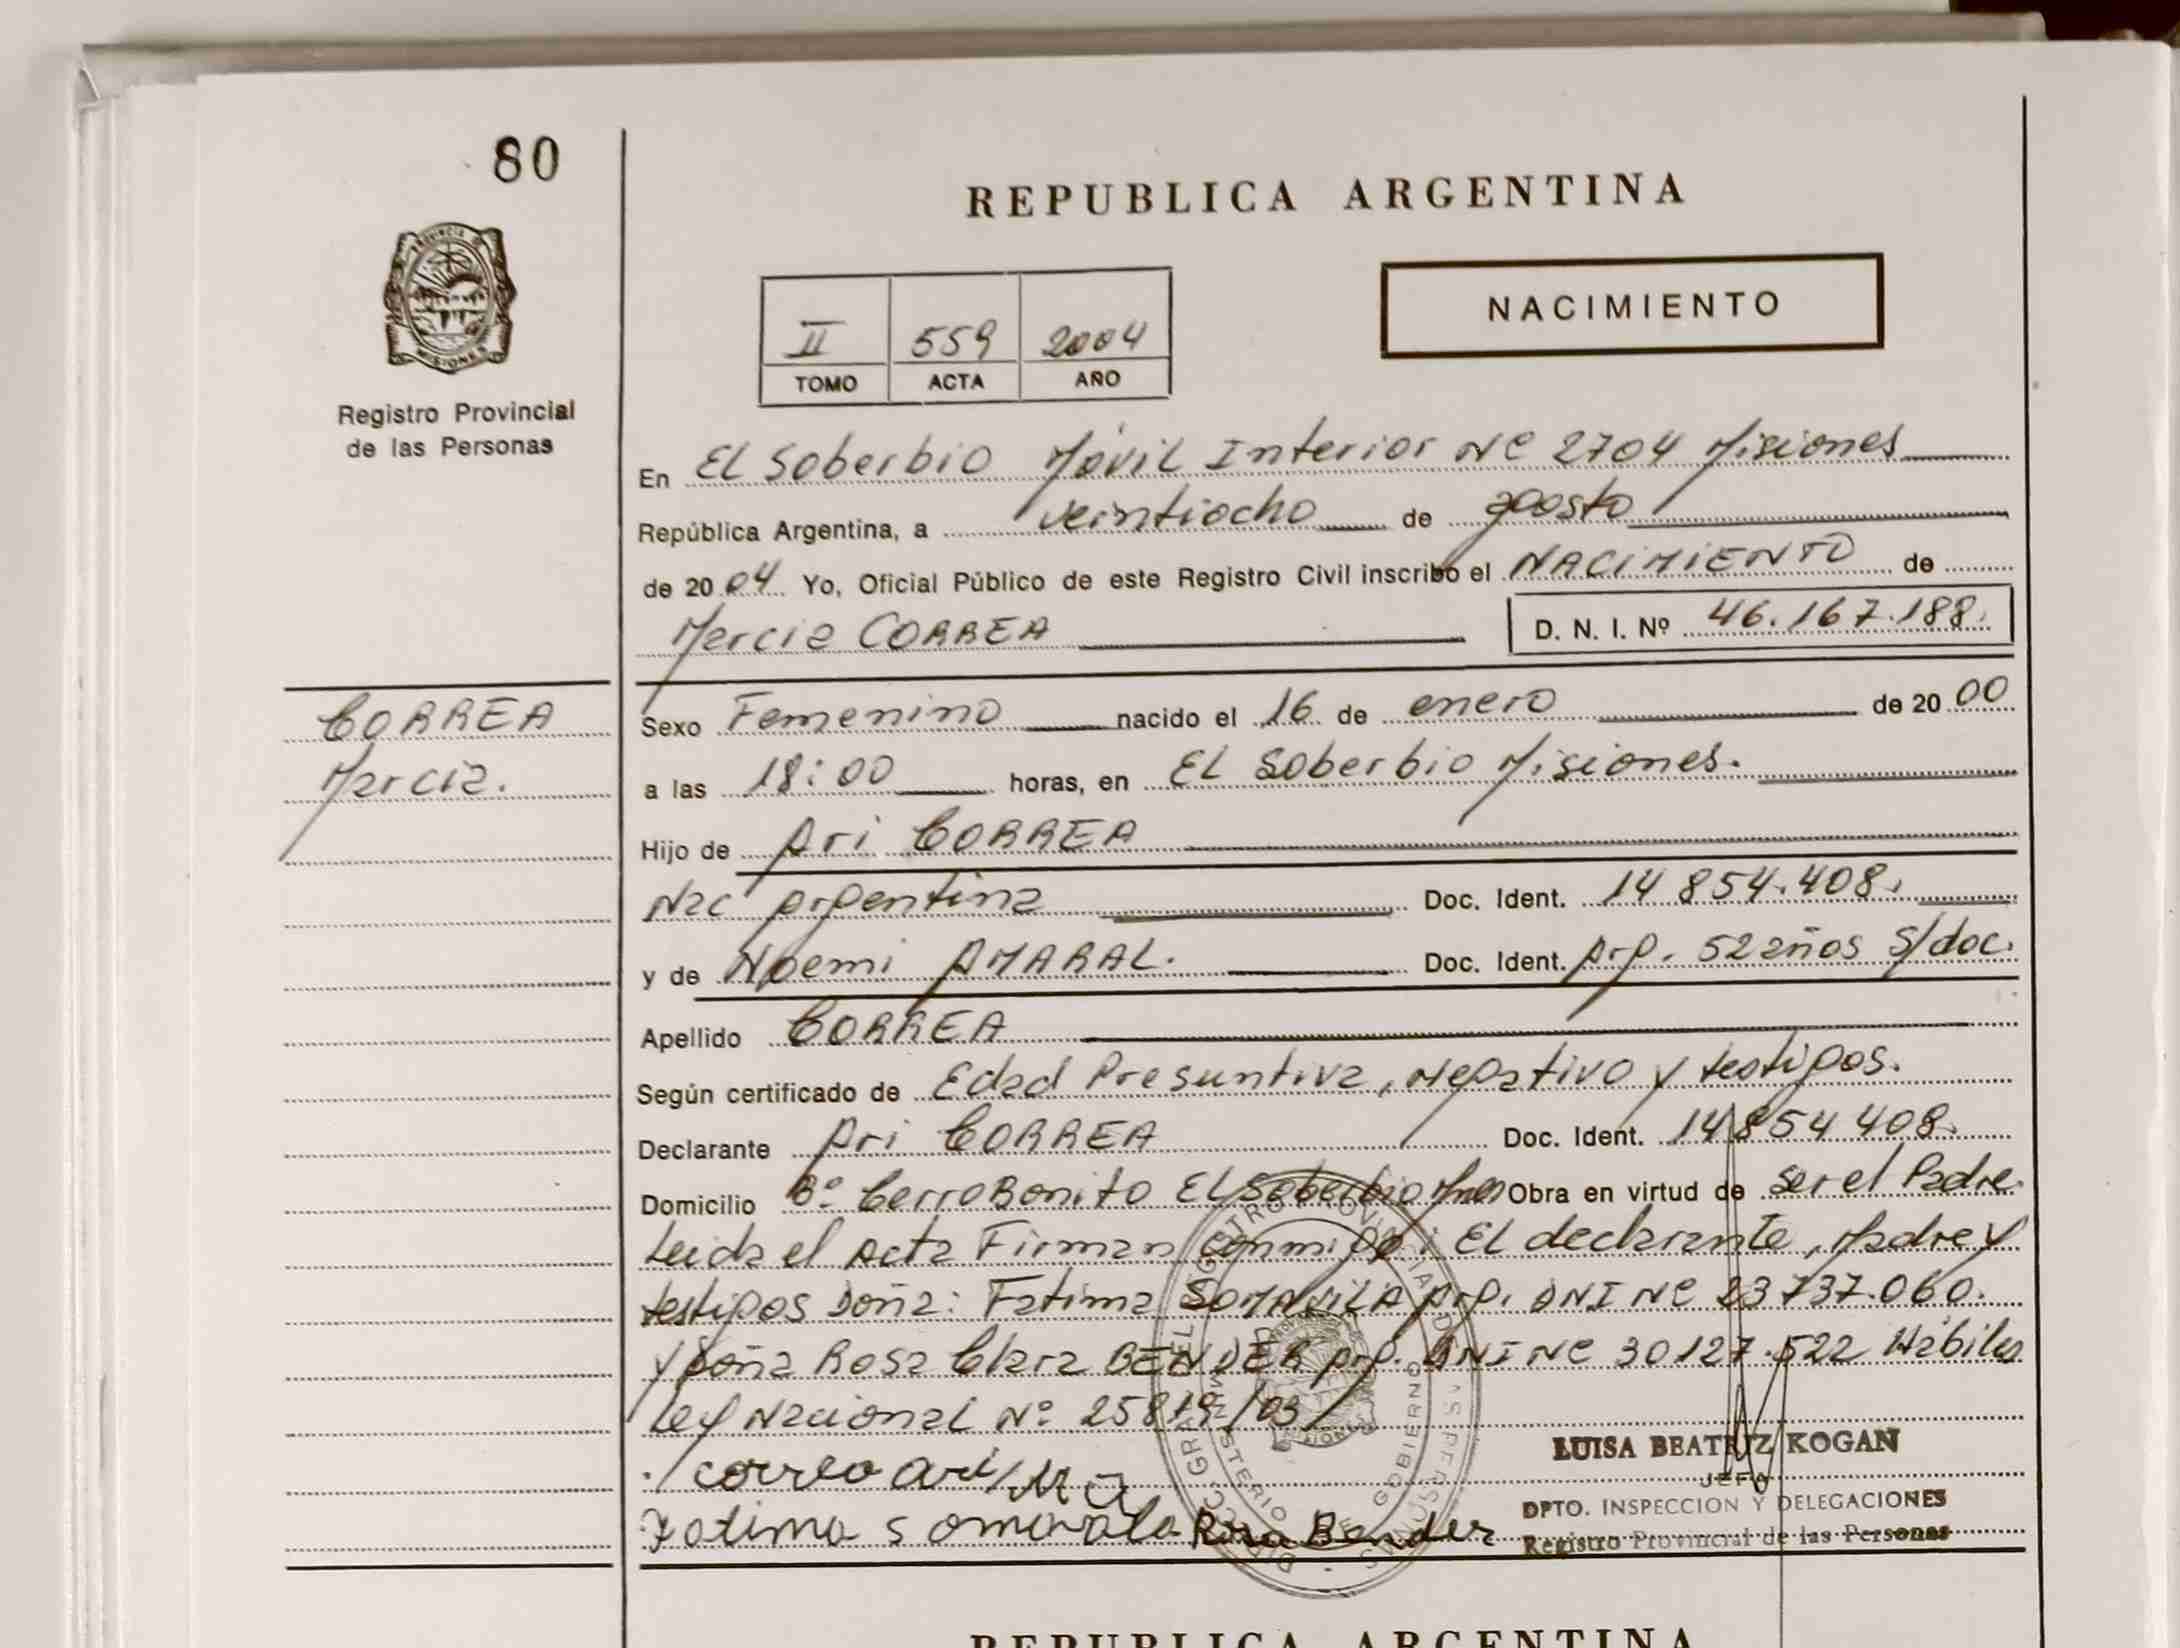 80
REPUBLICA ARGENTINA
NACIMIENTO
II 559 2004
TOMO ACTA AÑO
PROVINCIA DE
MISIONES
Registro Provincial
de las Personas
En El Soberbio Móvil Interior Nº 2704 Misiones
República Argentina, a veintiocho de agosto
de 2004 Yo, Oficial Público de este Registro Civil inscribo el NACIMIENTO de
Marcia CORREA D. N. I. Nº 46.167.188.
CORREA
Marcia.
Sexo Femenino nacido el 16 de enero de 2000
a las 18:00 horas, en El Soberbio Misiones.
Hijo de Ari CORREA
Nac Argentina Doc. Ident. 14 854.408.
y de Noemi AMARAL. Doc. Ident. Arg. 52 años S/doc.
Apellido CORREA
Según certificado de Edad Presuntiva, Negativo y testigos.
Declarante Ari CORREA Doc. Ident. 14 854 408.
Domicilio Bº Cerro Bonito El Soberbio Mnes Obra en virtud de ser el Padre.
Leida el Acta Firman conmigo: El declarante, Madre y
testigos Doña: Fatima SOMAVILA Arg. DNI Nº 23 737.060.
y Doña Rosa Clara BENDER Arg. DNI Nº 30127.522 Hábiles
Ley Nacional Nº 25819/03/
correa ari
Fatima Somavila Rosa Bender
LUISA BEATRIZ KOGAN
JEFA
DPTO. INSPECCION Y DELEGACIONES
Registro Provincial de las Personas
MINISTERIO DE GOBIERNO
REPUBLICA ARGENTINA